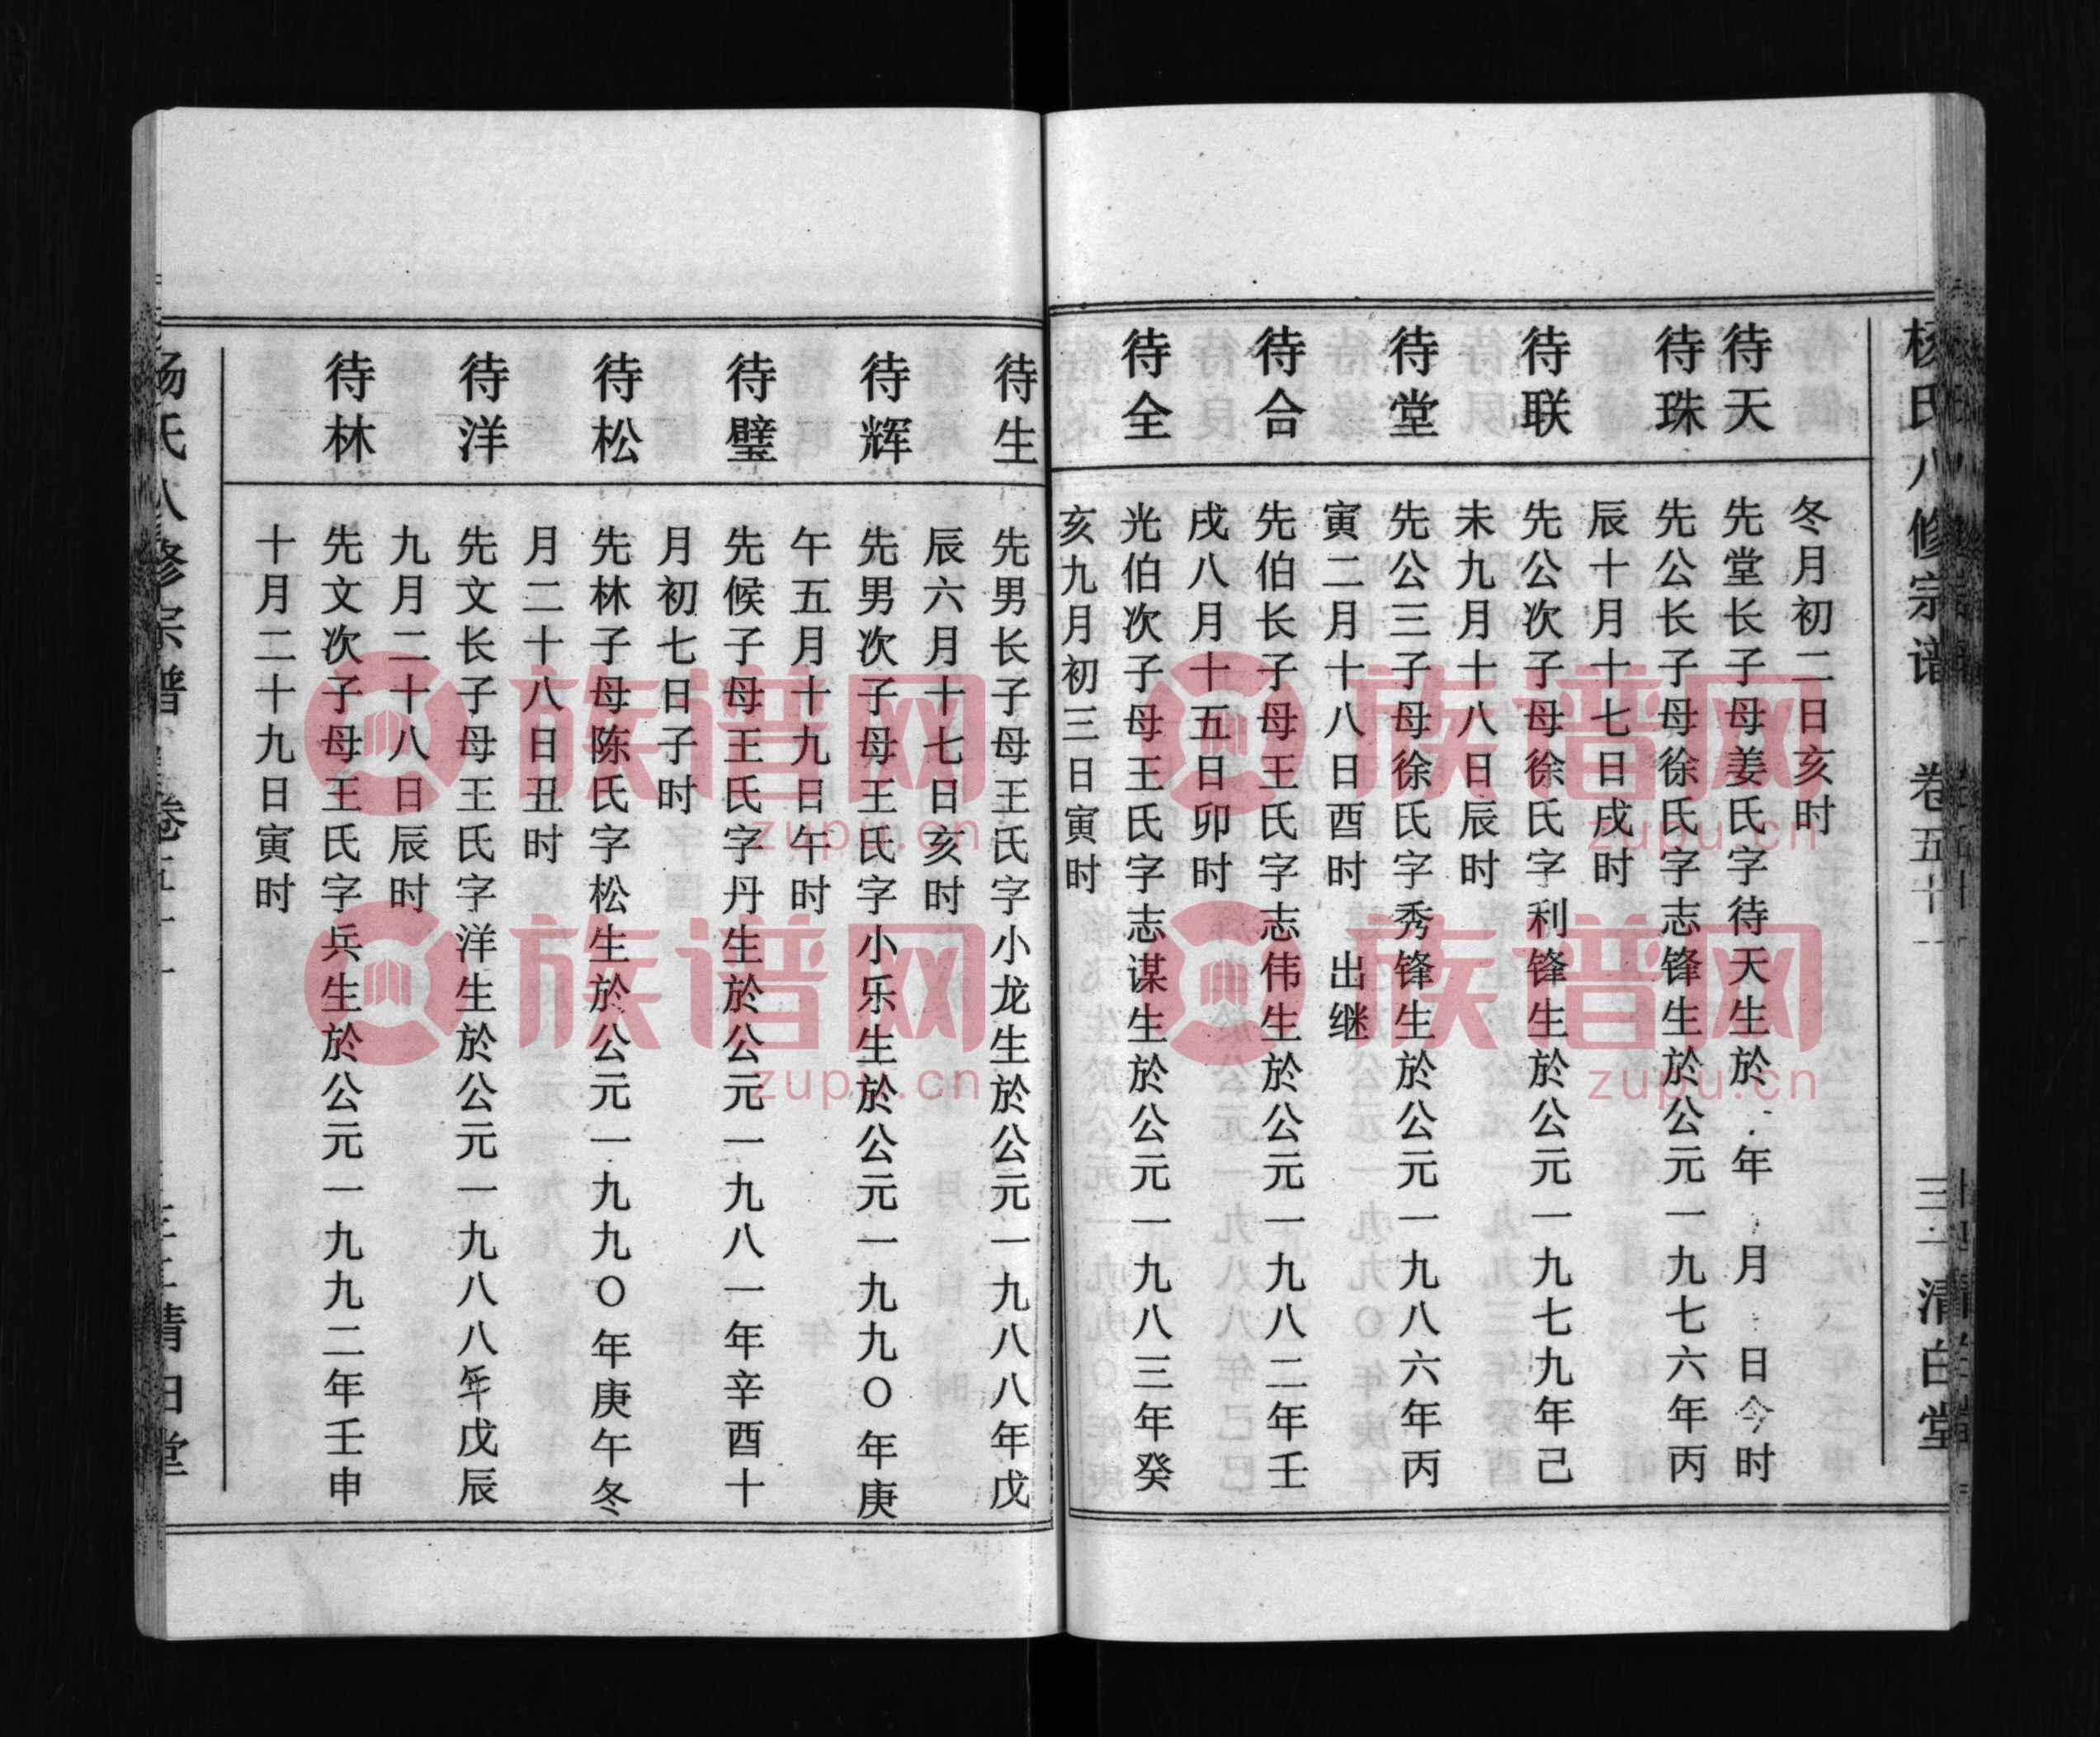 杨氏八修宗谱 卷五十一 三二 清白堂
冬月初二日亥时
待天
先堂长子母姜氏字待天生於 年 月 日今时
待珠
先公长子母徐氏字志锋生於公元一九七六年丙
辰十月十七日戌时
待联
先公次子母徐氏字利锋生於公元一九七九年己
未九月十八日辰时
待堂
先公三子母徐氏字秀锋生於公元一九八六年丙
寅二月十八日酉时 出继
待合
先伯长子母王氏字志伟生於公元一九八二年壬
戌八月十五日卯时
待全
光伯次子母王氏字志谋生於公元一九八三年癸
亥九月初三日寅时
待生
先男长子母王氏字小龙生於公元一九八八年戊
辰六月十七日亥时
待辉
先男次子母王氏字小乐生於公元一九九〇年庚
午五月十九日午时
待璧
先候子母王氏字丹生於公元一九八一年辛酉十
月初七日子时
待松
先林子母陈氏字松生於公元一九九〇年庚午冬
月二十八日丑时
待洋
先文长子母王氏字洋生於公元一九八八年戊辰
九月二十八日辰时
待林
先文次子母王氏字兵生於公元一九九二年壬申
十月二十九日寅时
杨氏八修宗谱 卷五十一 清白堂
族谱网
zupu.cn
族谱网
zupu.cn
族谱网
zupu.cn
族谱网
zupu.cn